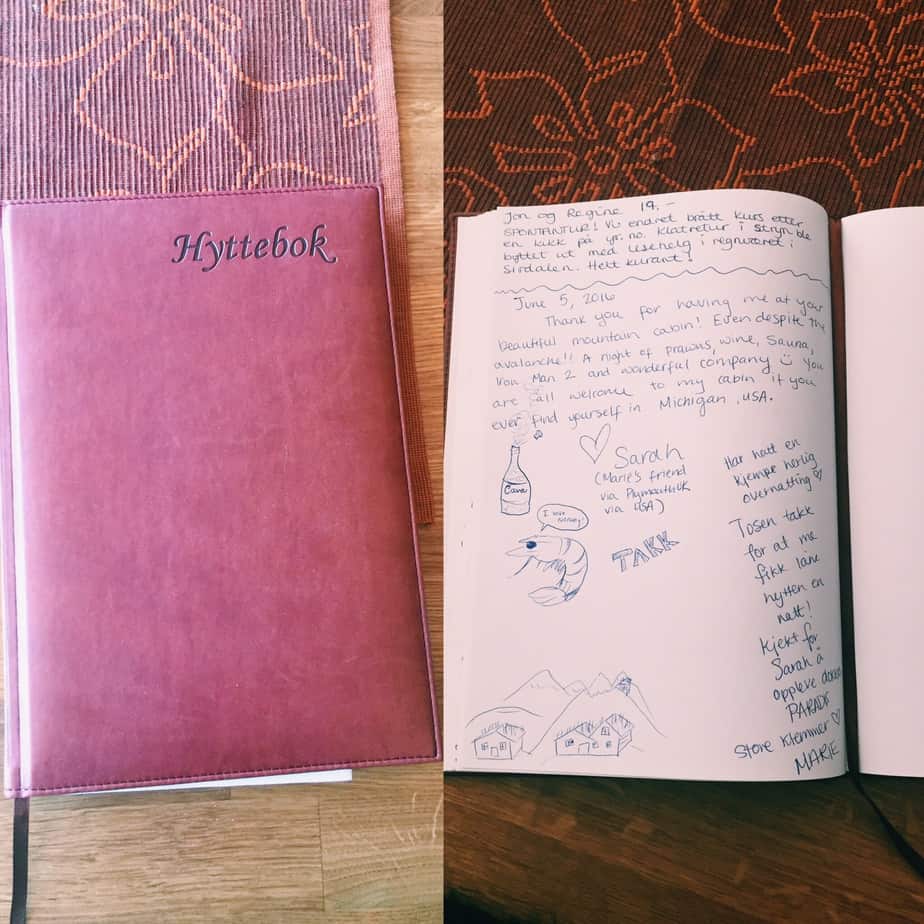 Hyttebok
Jon og Regine 19.-
SPONTANTUR! Vi endret brått kurs etter
en kikk på yr.no. Klatretur i Stryn ble
byttet ut med lesehelg i regnværet i
Sirdalen. Helt kurant!
June 5, 2016
Thank you for having me at your
beautiful mountain cabin! Even despite the
avalanche!! A night of prawns, wine, Sauna,
Iron Man 2 and wonderful company You
are all welcome to my cabin if you
ever find yourself in Michigan, USA.
Cava
Sarah
(Marie's friend
via Plymouth UK
via USA)
I love Norway!
TAKK
Har hatt en
kjempe herlig
overnatting
Tusen takk
for at me
fikk låne
hytten en
natt!
Kjekt for
Sarah å
oppleve dokkas
PARADIS
Store klemmer
MARIE